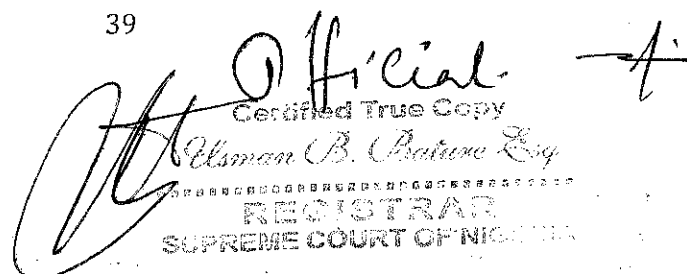 39
Official
Certified True Copy
Usman B. Bature Esq.
REGISTRAR
SUPREME COURT OF